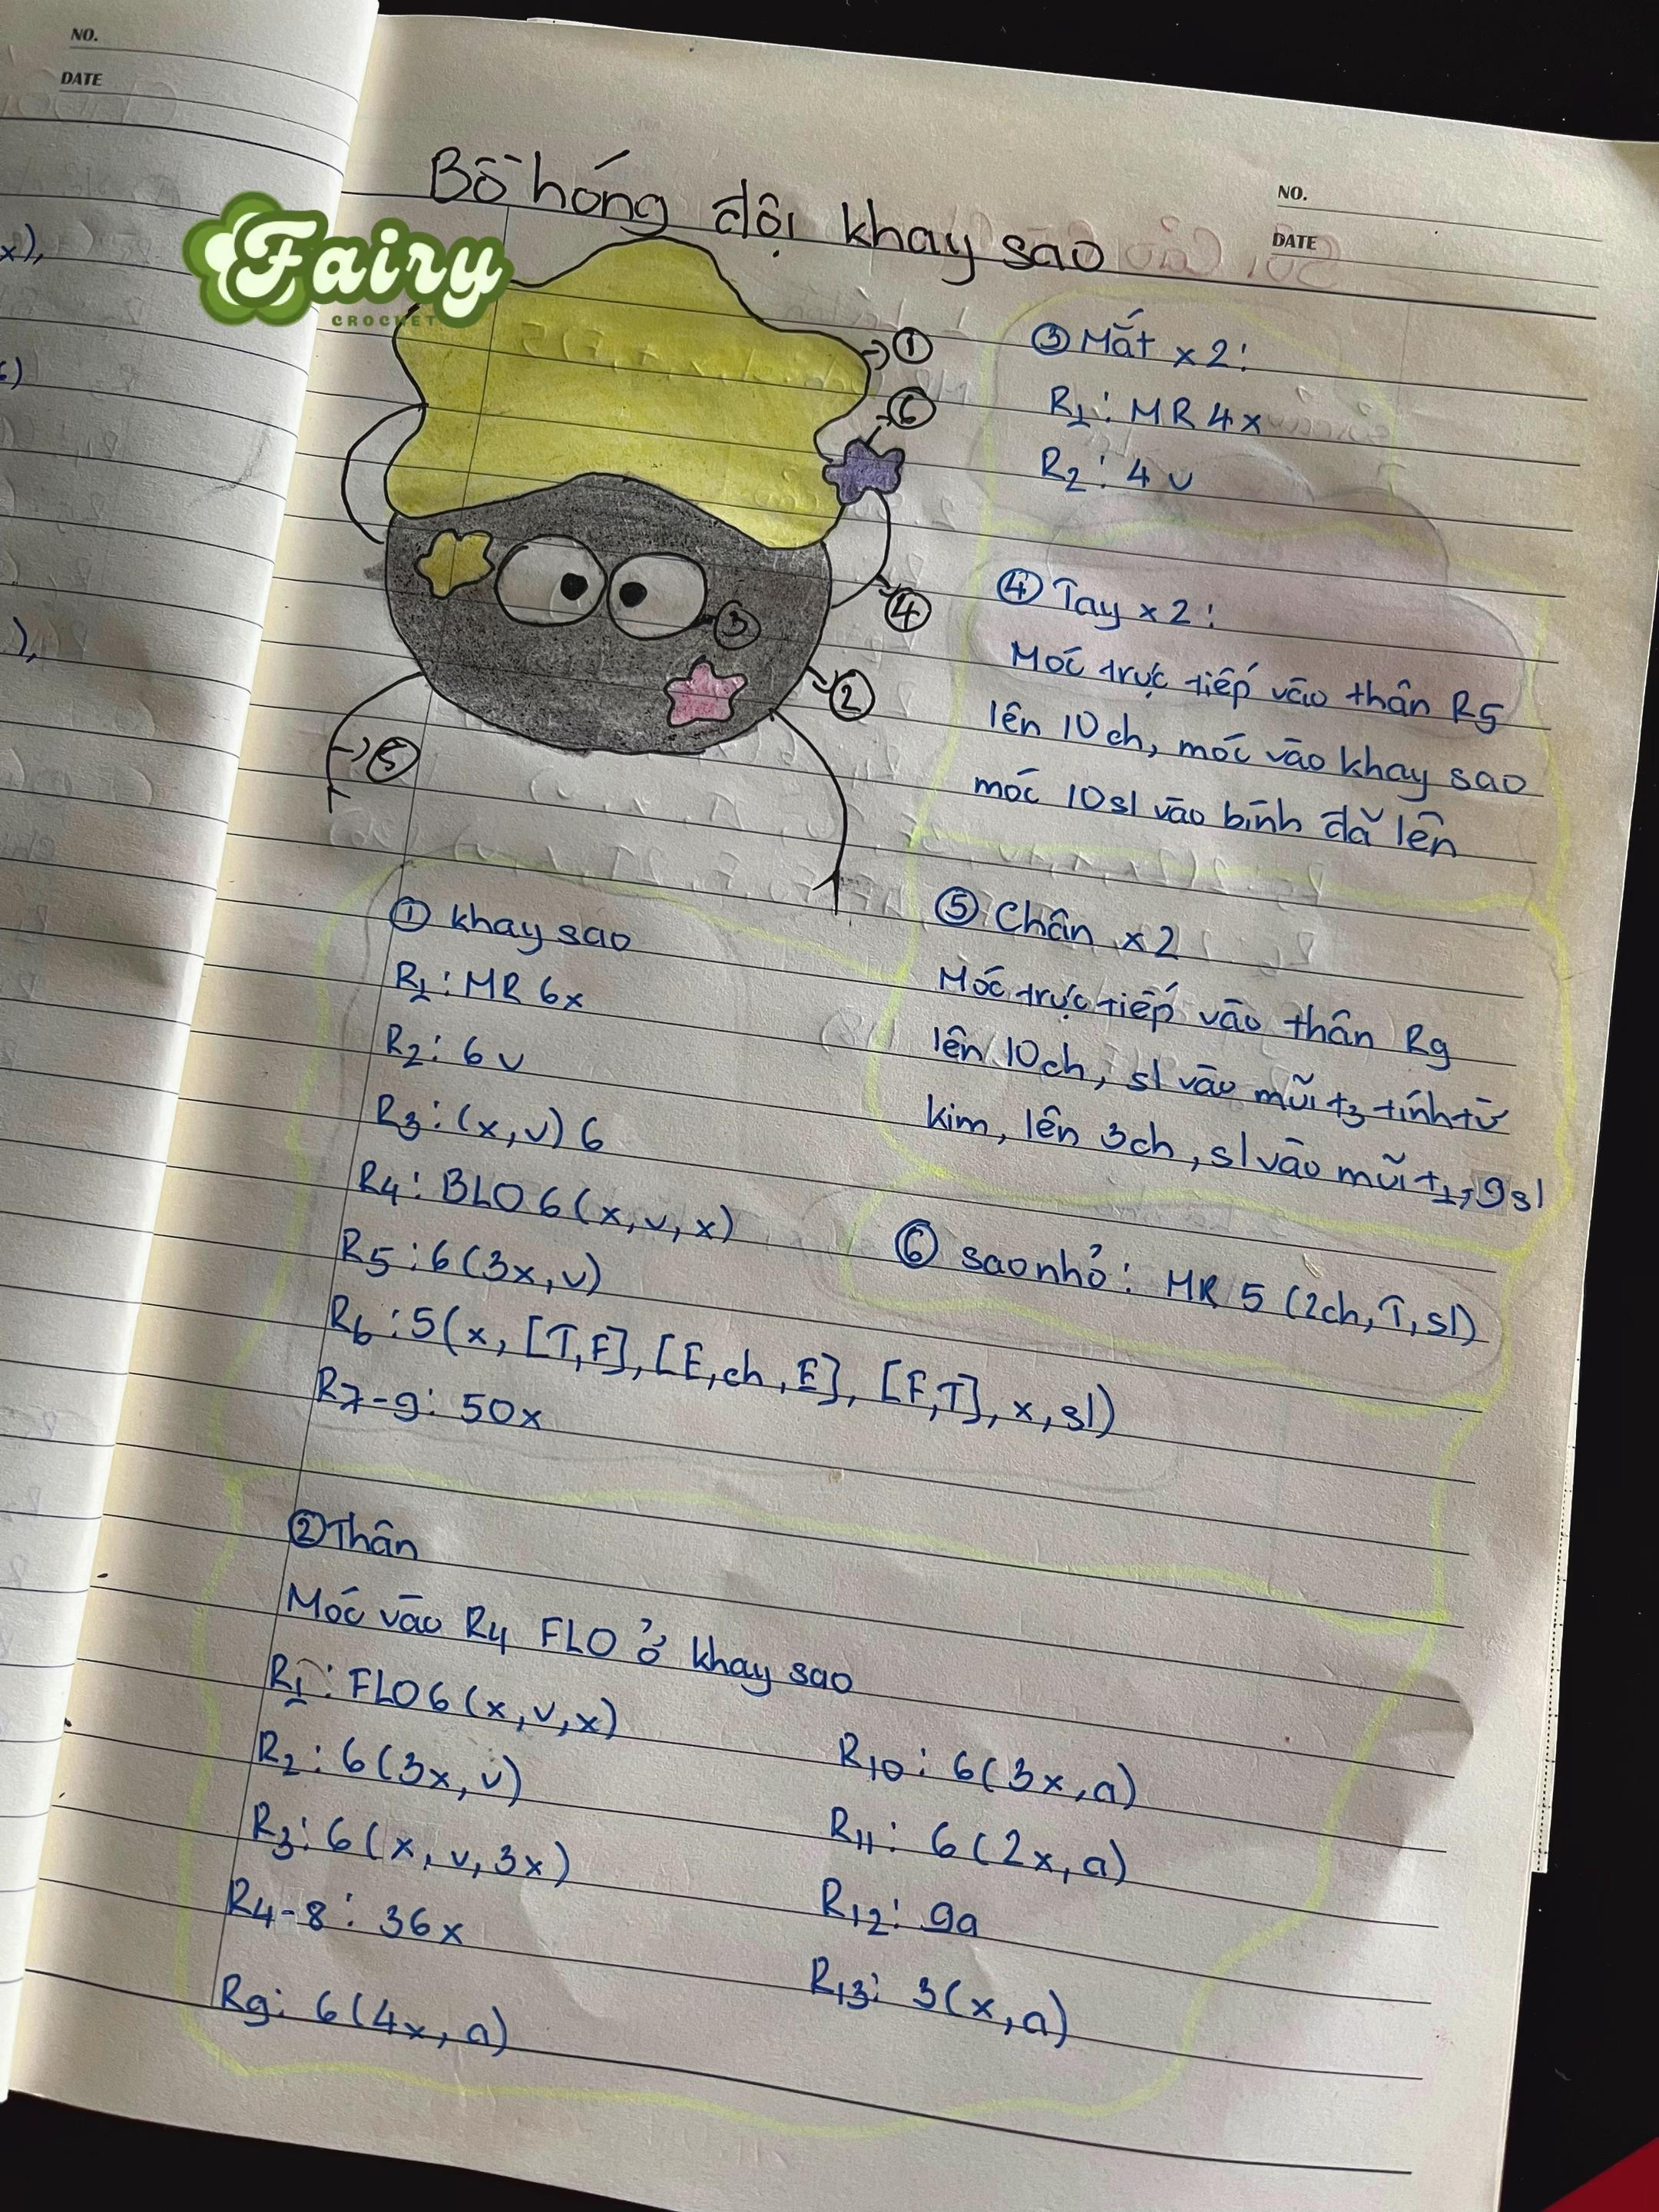 NO.
DATE
Bồ hóng đội khay sao
NO.
DATE
Fairy
CROCHET
x),
),
1
6
3
4
2
5
③ Mắt x 2:
R1: MR 4x
R2: 4 v
④ Tay x 2:
Móc trực tiếp vào thân R5
lên 10ch, móc vào khay sao
móc 10sl vào bính đã lên
① khay sao
R1: MR 6x
R2: 6 v
R3: (x, v) 6
R4: BLO 6 (x, v, x)
R5: 6 (3x, v)
R6: 5(x, [T,F], [E,ch,E], [F,T], x, sl)
R7-9: 50x
⑤ Chân x2
Móc trực tiếp vào thân R9
lên 10ch, sl vào mũi t3 tính từ
kim, lên 3ch, sl vào mũi t1, 9sl
⑥ sao nhỏ: MR 5 (2ch, T, sl)
② Thân
Móc vào R4 FLO ở khay sao
R1: FLO 6 (x, v, x)
R2: 6 (3x, v)
R3: 6 (x, v, 3x)
R4-8: 36x
R9: 6 (4x, A)
R10: 6 (3x, A)
R11: 6 (2x, A)
R12: 9A
R13: 3(x, A)